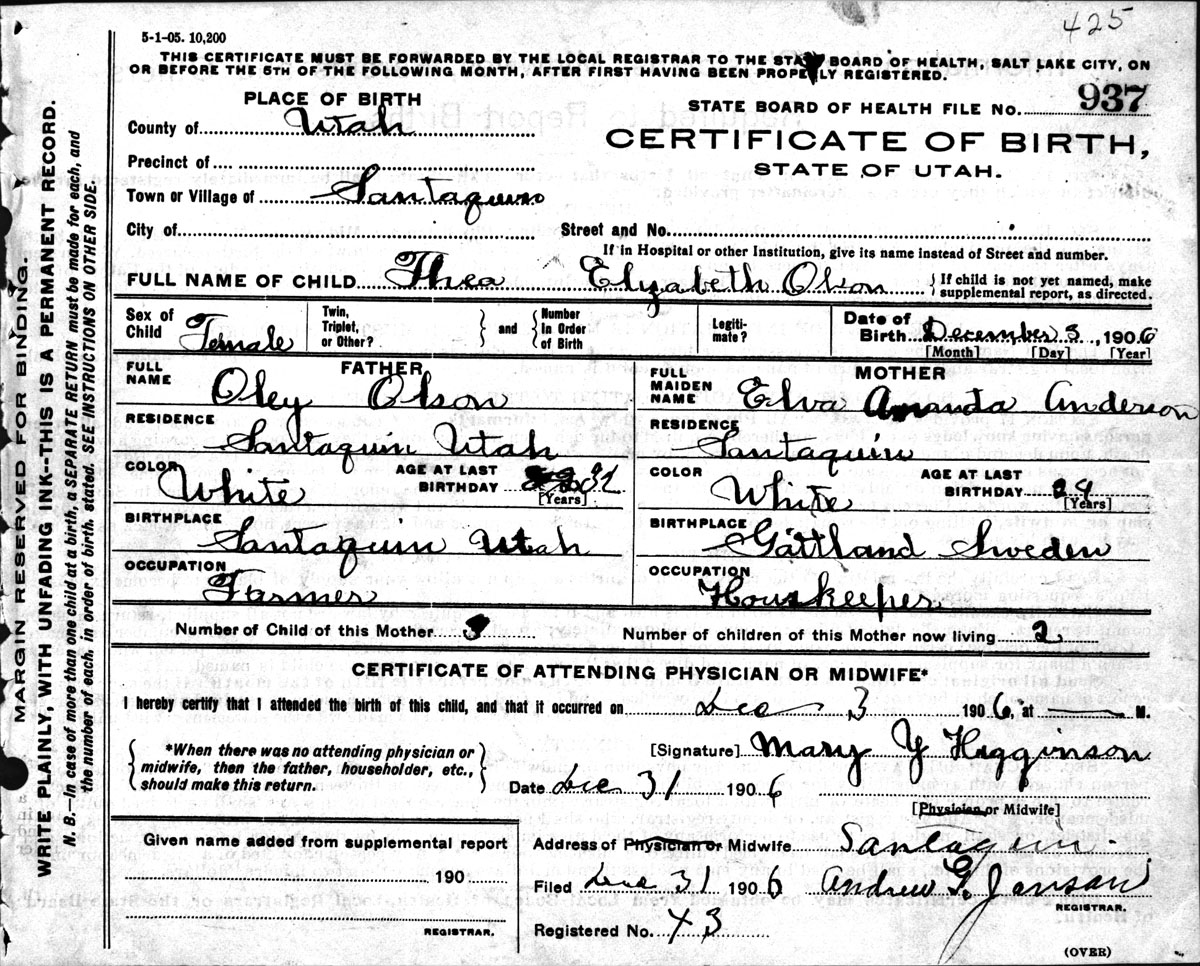 425
5-1-05. 10,200
THIS CERTIFICATE MUST BE FORWARDED BY THE LOCAL REGISTRAR TO THE STATE BOARD OF HEALTH, SALT LAKE CITY, ON
OR BEFORE THE 5TH OF THE FOLLOWING MONTH, AFTER FIRST HAVING BEEN PROPERLY REGISTERED.
PLACE OF BIRTH
STATE BOARD OF HEALTH FILE No. 937
County of Utah
CERTIFICATE OF BIRTH,
STATE OF UTAH.
Precinct of
Town or Village of Santaquin
City of Street and No.
If in Hospital or other Institution, give its name instead of Street and number.
FULL NAME OF CHILD Thea Elizabeth Olson {If child is not yet named, make
supplemental report, as directed.
Sex of Child Female Twin, Triplet, or Other? } and { Number In Order of Birth Legiti-mate? Date of Birth December 3, 1906
[Month] [Day] [Year]
FATHER
MOTHER
FULL NAME Oley Olson
FULL MAIDEN NAME Elva Amanda Anderson
RESIDENCE Santaquin Utah
RESIDENCE Santaquin
COLOR White AGE AT LAST BIRTHDAY 32 [Years]
COLOR White AGE AT LAST BIRTHDAY 24 [Years]
BIRTHPLACE Santaquin Utah
BIRTHPLACE Gattland Sweden
OCCUPATION Farmer
OCCUPATION Houskeeper
Number of Child of this Mother 3 Number of children of this Mother now living 2
CERTIFICATE OF ATTENDING PHYSICIAN OR MIDWIFE*
I hereby certify that I attended the birth of this child, and that it occurred on Dec 3 1906, at — M.
{ *When there was no attending physician or
midwife, then the father, householder, etc.,
should make this return. }
[Signature] Mary Y Higginson
Date Dec 31 1906
[Physician or Midwife]
Given name added from supplemental report
190
REGISTRAR.
Address of Physician or Midwife Santaquin
Filed Dec 31 1906 Andrew G. Janson
REGISTRAR.
Registered No. 43
(OVER)
MARGIN RESERVED FOR BINDING.
WRITE PLAINLY, WITH UNFADING INK--THIS IS A PERMANENT RECORD.
N. B.—In case of more than one child at a birth, a SEPARATE RETURN must be made for each, and
the number of each, in order of birth, stated. SEE INSTRUCTIONS ON OTHER SIDE.